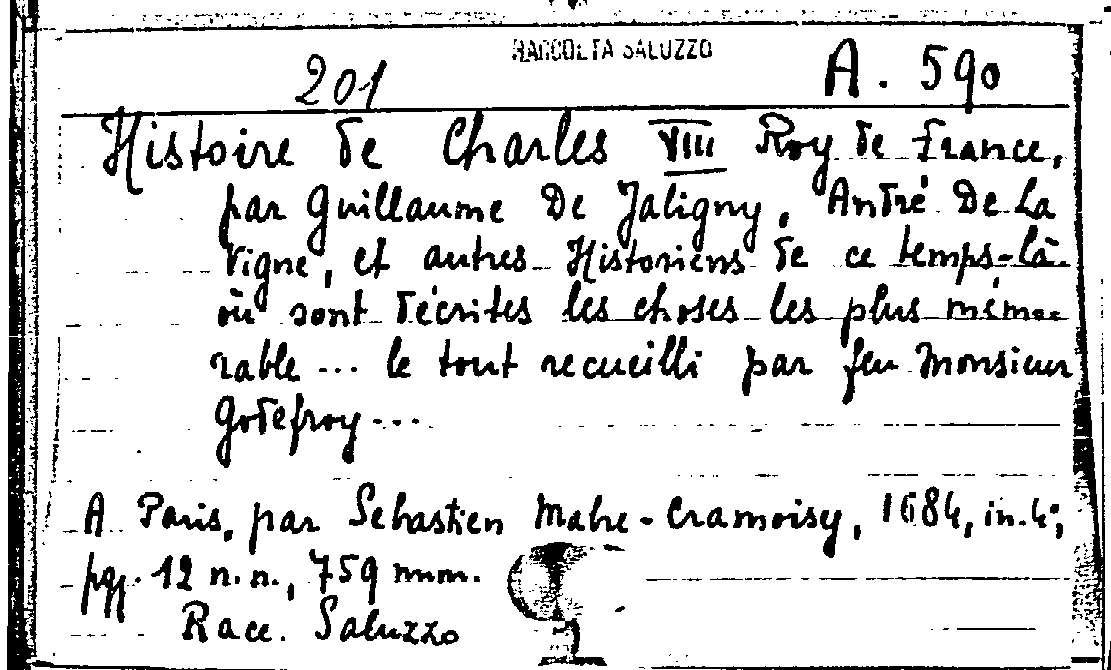 RACCOLTA SALUZZO
201 A. 590
Histoire de Charles VIII Roy de France,
par Guillaume De Jaligny, André De La
Vigne, et autres Historiens de ce temps-là
où sont décrites les choses les plus mémo-
rable... le tout recueilli par feu Monsieur
Godefroy...
A Paris, par Sebastien Mabre-Cramoisy, 1684, in-4°;
pgg. 12 n.n., 759 num.
Racc. Saluzzo